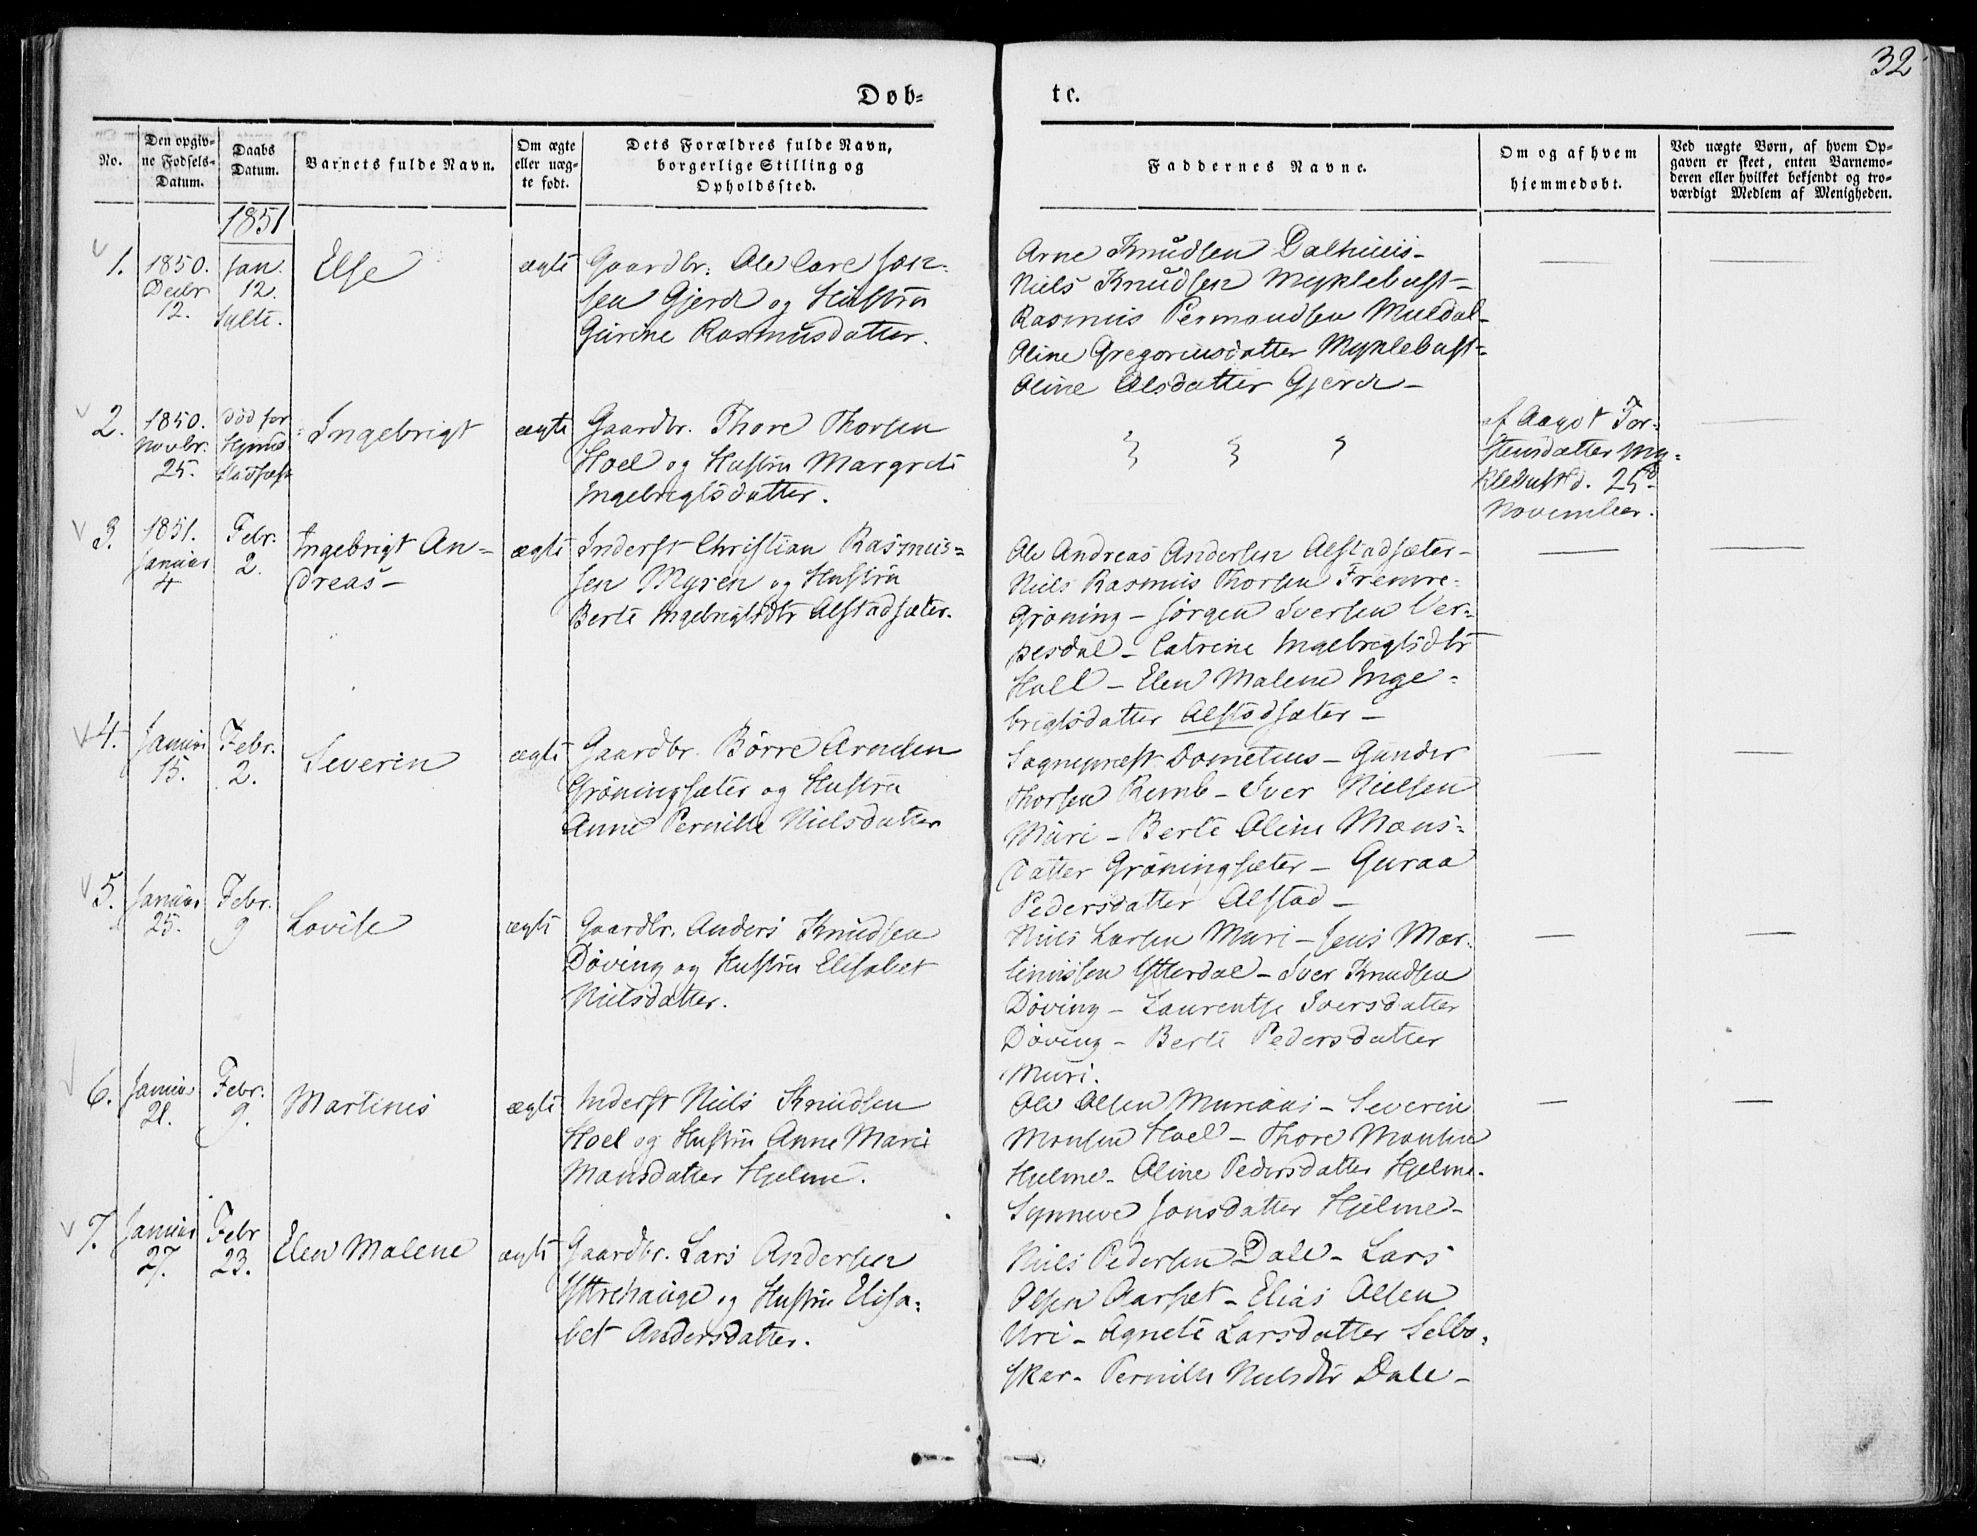 32
Døb=
te.
No.
Den opgiv=
ne Fødsels=
Datum.
Daabs
Datum.
Barnets fulde Navn.
Om ægte
eller uæg=
te født.
Dets Forældres fulde Navn,
borgerlige Stilling og
Opholdssted.
Faddernes Navne.
Om og af hvem
hjemmedøbt.
Ved uægte Børn, af hvem Op=
gaven er skeet, enten Barnemo=
deren eller hvilket bekjendt og tro=
værdigt Medlem af Menigheden.
1851
1.
1850.
Decbr
12.
Jan.
12.
Sylte.
Else
ægte
Gaardbr: Ole Lare Jon=
sen Gjerde og Hustru
Gurine Rasmusdatter.
Arne Knudsen Dalhuus-
Niels Knudsen Myklebust-
Rasmus Permandsen Muldal-
Oline Gregoriusdatter Myklebust-
Oline Olsdatter Gjerde-
2.
1850.
Novbr.
25.
død før
Stadfæst
Ingebrigt
ægte
Gaardbr. Thore Thorsen
Hoel og Hustru Margrete
Ingebrigtsdatter.
af Aagot Tor=
stensdatter My=
klebust d. 25de
November.
3.
1851.
Januar
4
Febr.
2.
Ingebrigt An=
dreas-
ægte
Inderst Christian Rasmus=
sen Myren og Hustru
Berte Ingebrigtsdtr Alstadsæter.
Ole Andreas Andersen Alstadsæter-
Niels Rasmus Thorsen Fremre=
Grøning - Jørgen Iversen Ver=
pesdal - Catrine Ingebrigtsdtr
Hall - Elen Malene Inge=
brigtsdatter Alstadsæter -
4.
Januar
15.
Febr.
2.
Severin
ægte
Gaardbr. Børre Arnesen
Grøningsæter og Hustru
Anne Pernille Nielsdatter
Sognepræst Dometius - Gunder
Thorsen Remb - Iver Nielsen
Muri - Berte Oline Mons=
datter Grøningsæter - Guraa
Pedersdatter Alstad -
5.
Januar
25.
Febr.
9
Lovise
ægte
Gaardbr. Anders Knudsen
Døving og Hustru Elisabet
Nielsdatter.
Niels Larsen Muri - Jens Mar=
tinussen Ytterdal - Iver Knudsen
Døving - Laurentse Iversdatter
Døving - Berte Pedersdatter
Muri.
6.
Januar
21.
Febr.
9.
Martinus
ægte
Inderst Niels Knudsen
Hoel og Hustru Anne Marie
Monsdatter Hjelme.
Ole Olsen Muriaas - Severin
Monsen Hoel - Thore Monsen
Hjelme - Oline Pedersdatter Hjelme.
Synneve Jonsdatter Hjelme-
7.
Januar
27.
Febr
23.
Elen Malene
ægte
Gaardbr. Lars Andersen
Yttrehauge og Hustru Elisa=
bet Andersdatter.
Niels Pedersen Dale - Lars
Olsen Aarset - Elias Olsen
Uri - Agnete Larsdatter Selbo=
skar - Pernille Nielsdtr Dale -